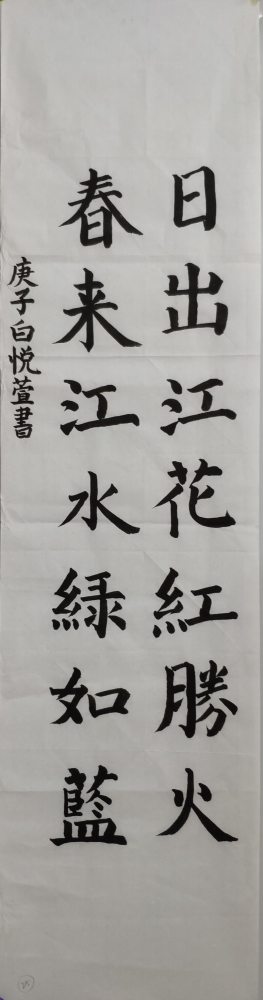 日出江花紅勝火
春来江水緑如藍
庚子白悦萱書